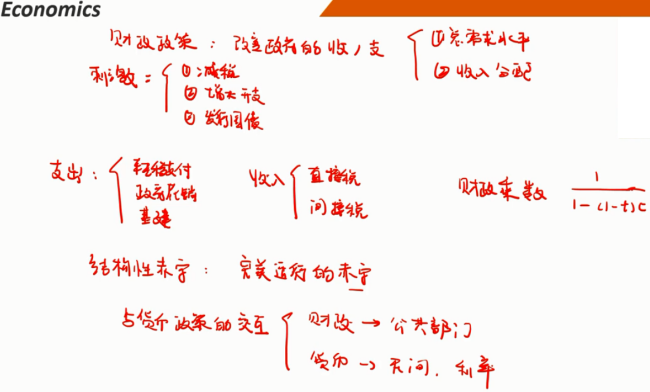 Economics
财政政策：改变政府的收/支 { ①总需求水平
②收入分配
刺激 = { ①减税
②增大开支
③发行国债
支出：{ 转移支付
政府花销
基建
收入 { 直接税
间接税
财政乘数 1/(1-(1-t)c
结构性赤字：完美运行的赤字
与货币政策的交互 { 财政 → 公共部门
货币 → 民间, 利率